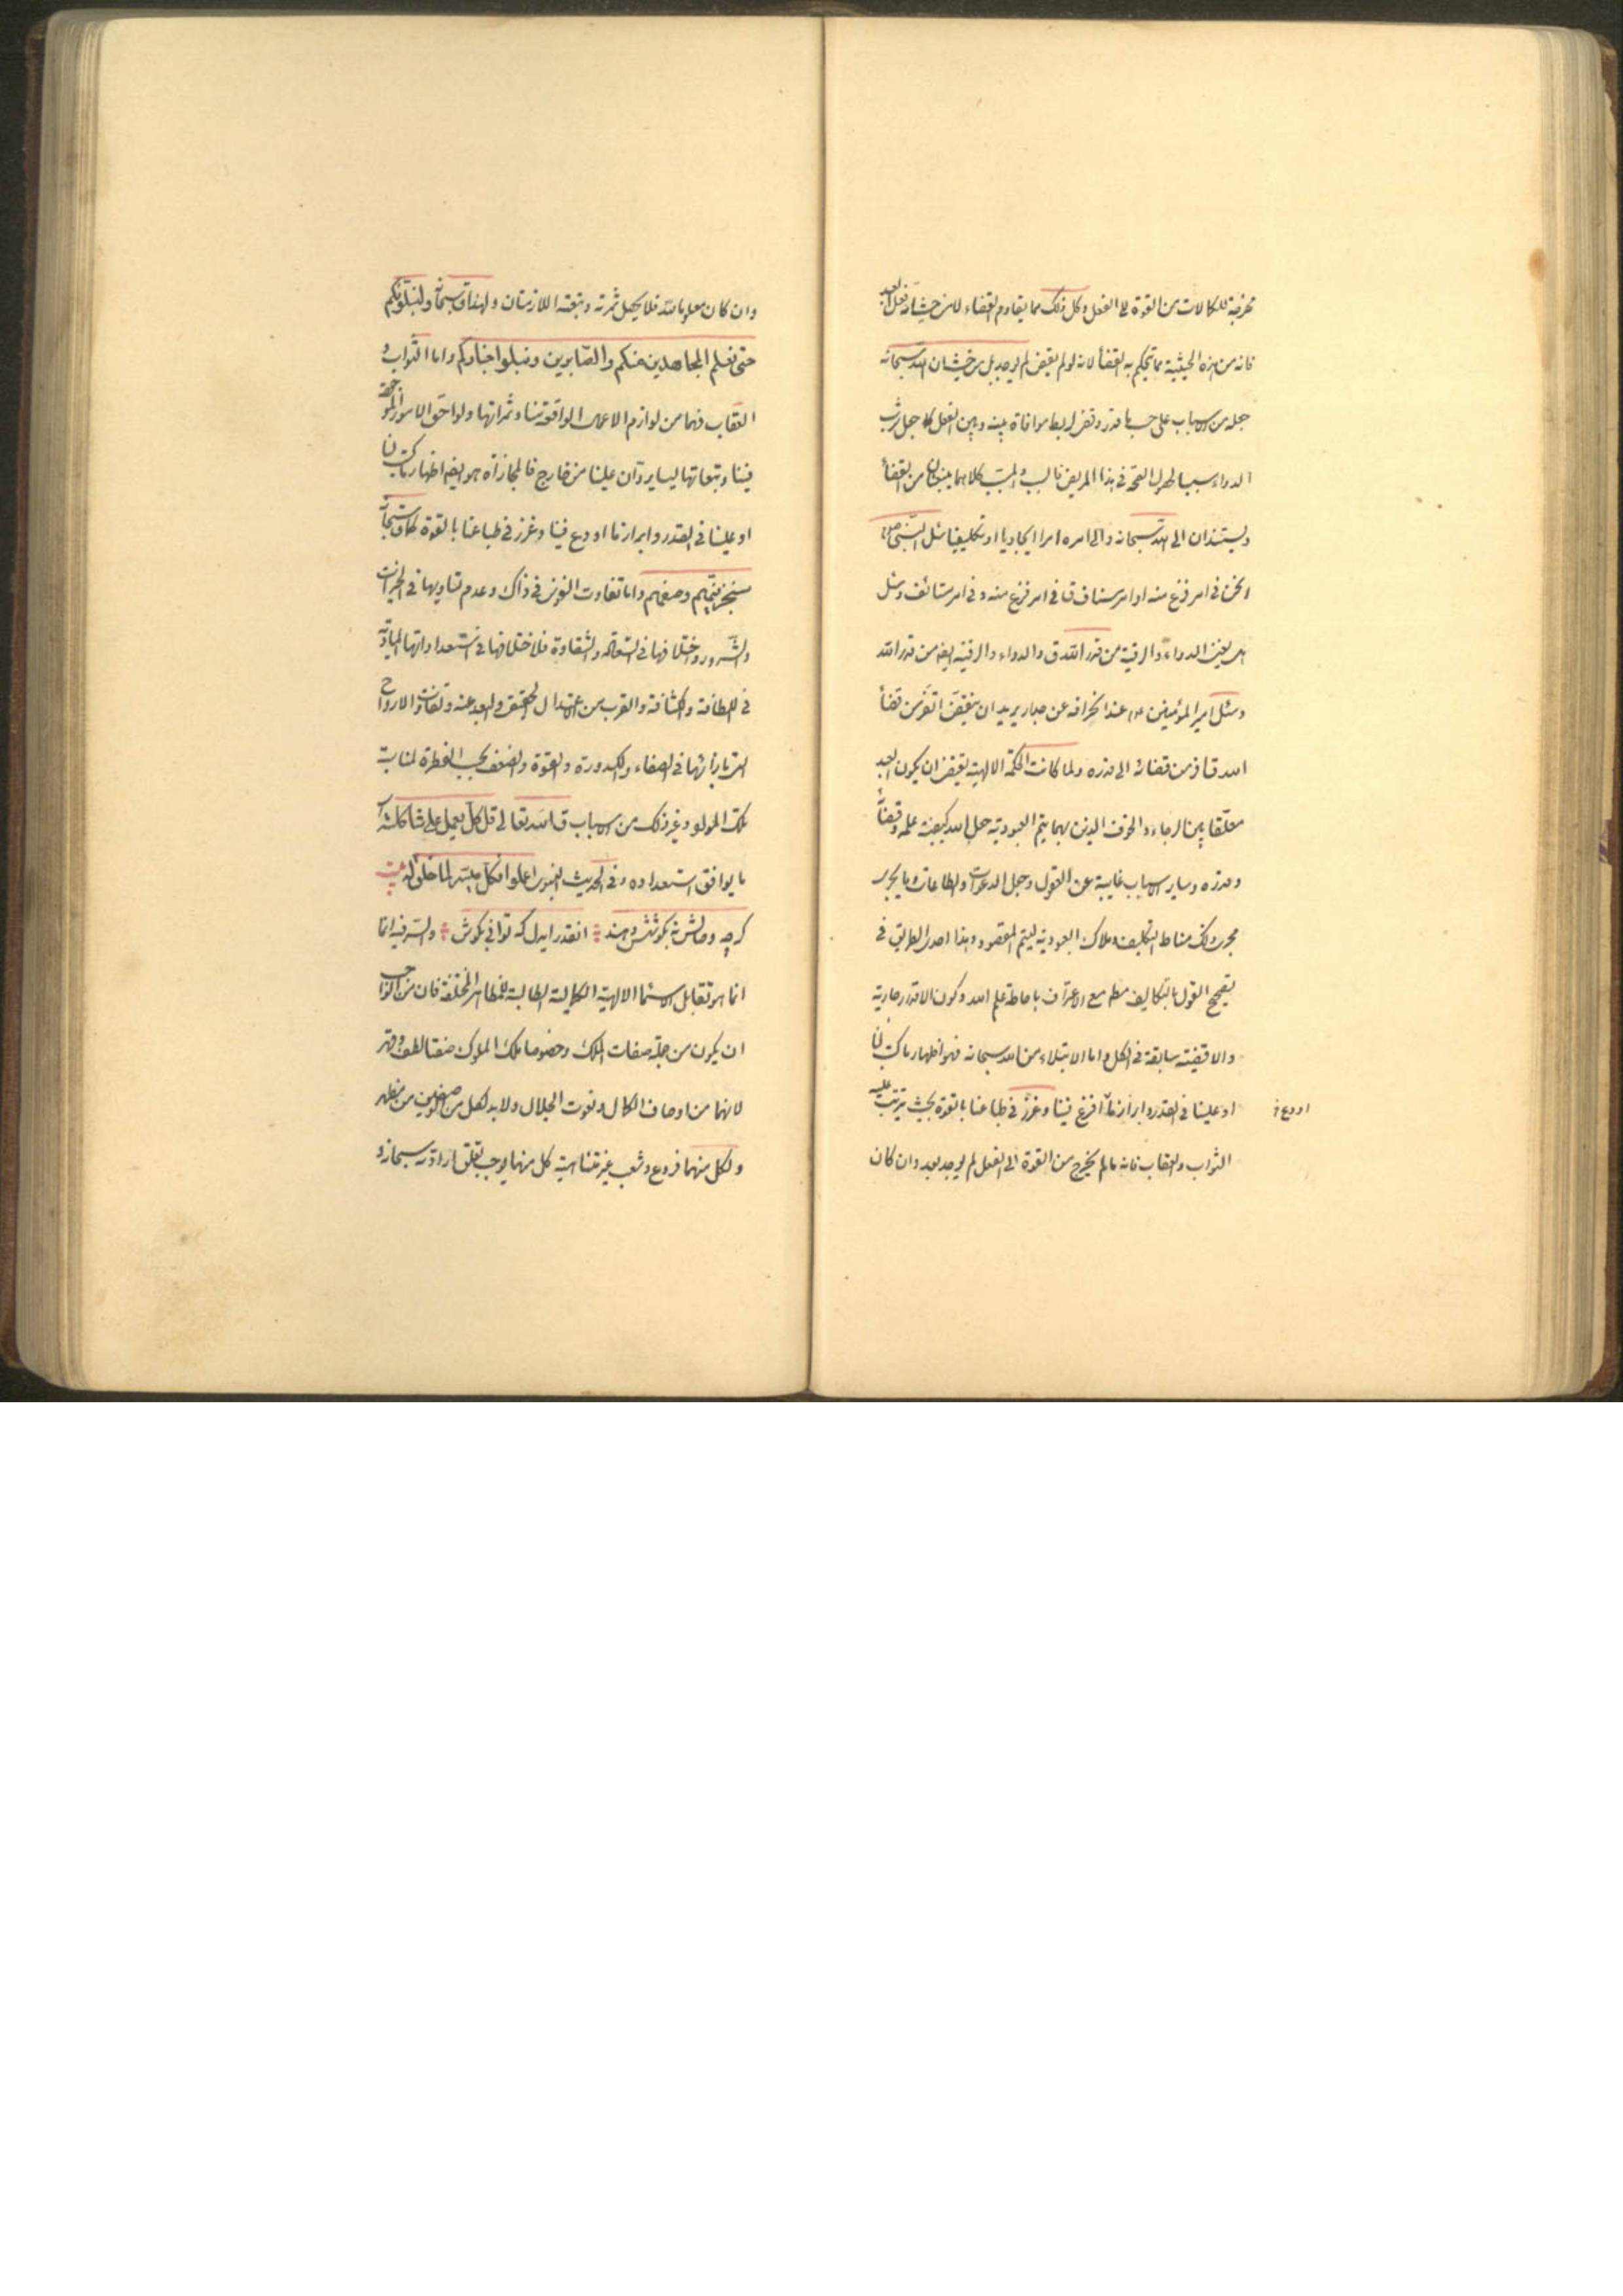 مخرجة للكمالات من القوة الى الفعل وكل ذلك مما يقاوم القضاء لا من حيث انه فعل العبد
فانه من هذه الحيثية مما يحكم به القضأ لانه لو لم يقض لم يوجد بل من حيث ان الله سبحانه
جعله من الاسباب على حسب ما قدر وقضى لربط موافاة بينه وبين الفعل كما جعل شرب
الدواء سببا لحصول الصحة فى هذا المريض فالسبب والمسبب كلاهما ينبعثان من القضأ
ويستندان الى الله سبحانه والى امره امرا ايجاديا او تكليفيا سئل النبى ص
انحن فى امر فرغ منه او امر مستأنف ق فى امر فرغ منه وفى امر مستأنف وسئل
هل يغنى الدواء والرقية من قدر الله ق والدواء والرقية ايضا من قدر الله
وسئل امير المؤمنين ع م عند انحرافه عن جدار يريد ان ينقض اتفر من قضأ
الله قال افر من قضائه الى قدره ولما كانت الحكمة الالهية تقتضى ان يكون العبد
معلقا بين الرجاء والخوف الذين بهما يتم العبودية جعل الله كيفية علمه وقضائه
وقدره وساير الاسباب غايبة عن العقول وجعل الدعوات والطاعات وما يجرى
مجرى ذلك مناط التكليف وملاك العبودية ليتم المقصود وهذا احدى الطرايق فى
تصحيح القول بالتكاليف مط مع الاعتراف باحاطة علم الله وكون الاقدار جارية
والاقضية سابقة فى الكل واما الابتلاء من الله سبحانه فهو اظهار ما كتب لنا
او علينا فى القدر وابراز ما افرغ فينا وغرز فى طباعنا بالقوة بحيث يترتب عليه
اودع خ
الثواب والعقاب فانه ما لم يخرج من القوة الى الفعل لم يوجد بعد وان كان
وان كان معلوما لله فلا يحصل ثمرته وتبعته اللازمتان ولهذا ق سبحانه ولنبلونكم
حتى نعلم المجاهدين منكم والصابرين ونبلوا اخباركم واما الثواب و
العقاب فهما من لوازم الاعمال الواقعة منا وثمراتها ولواحق الامور الموجودة
فينا وتبعاتها ليسا يردان علينا من خارج فالمجازاة هو ايضا اظهار ما كتب لنا
او علينا فى القدر وابراز ما اودع فينا وغرز فى طباعنا بالقوة كما ق سبحانه
سيجزيهم وصفهم واما تفاوت النفوس فى ذلك وعدم تساويها فى الخيرات
والشرور واختلافها فى السعادة والشقاوة فلاختلافها فى استعداداتها المادية
فى اللطافة والكثافة والقرب من الاعتدال الحقيقى والبعد عنه وتفاوت الارواح
التى بازائها فى الصفاء والكدورة والقوة والضعف بحسب الفطرة لمناسبة
تلك المواد وغير ذلك من الاسباب ق الله تعالى قل كل يعمل على شاكلته اى
ما يوافق استعداده وفى الحديث النبوى اعملوا فكل ميسر لما خلق له بيت
كرچه وصالش نه بكوشش دهند آنقدر ايدل كه توانى بكوش والسر فيه انما
انما هو تقابل الاسماء الالهية الكمالية الطالبة للمظاهر المختلفة فان من الواجب
ان يكون من جملة صفات الملك وخصوصا ملك الملوك صفتا لطف وقهر
لانهما من اوصاف الكمال ونعوت الجلال ولا بد لكل من الصفتين من مظهر
ولكل منهما فروع وشعب غير متناهية كل منها يوجب تعلق ارادته سبحانه و